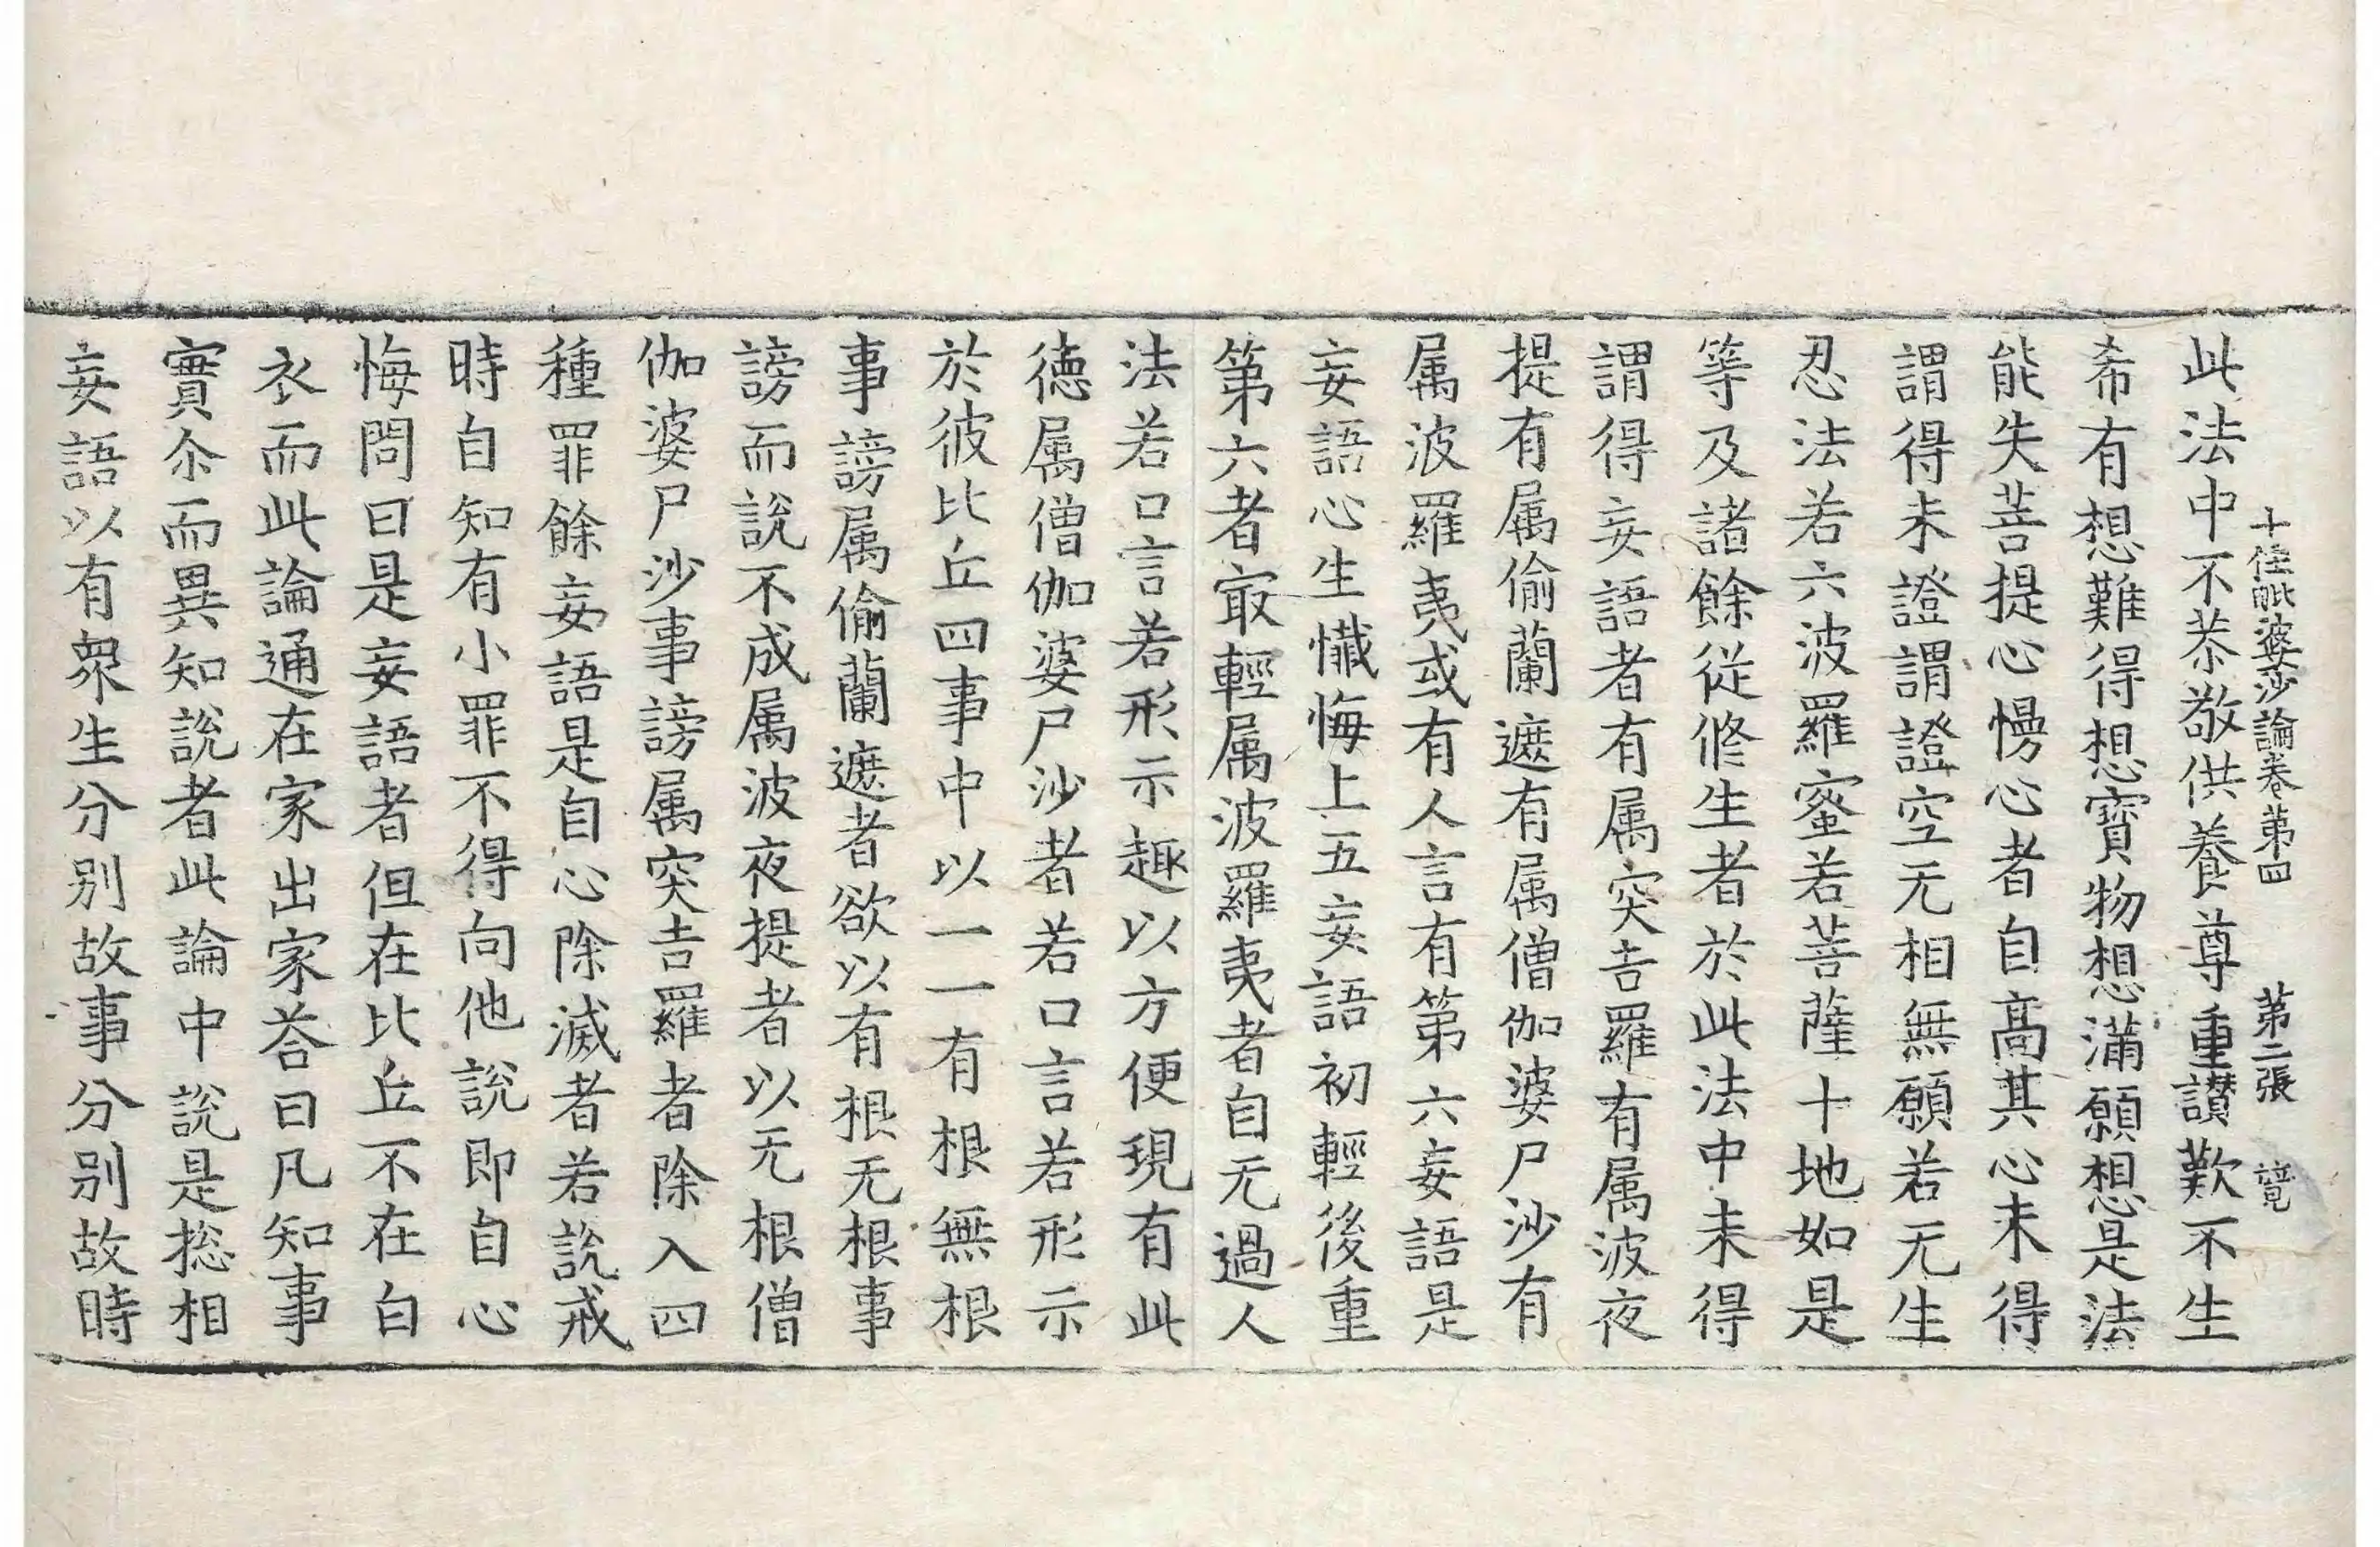 十住毗婆沙論卷第四 第二張 竟
此法中不恭敬供養尊重讃歎不生
希有想難得想寶物想滿願想是法
能失菩提心慢心者自髙其心未得
謂得未證謂證空无相無願若无生
忍法若六波羅蜜若菩薩十地如是
等及諸餘従修生者於此法中未得
謂得妄語者有属突吉羅有属波夜
提有属偷蘭遮有属僧伽婆尸沙有
属波羅夷或有人言有第六妄語是
妄語心生懺悔上五妄語初輕後重
第六者冣輕属波羅夷者自无過人
法若口言若形示趣以方便現有此
徳属僧伽婆尸沙者若口言若形示
於彼比丘四事中以一一有根無根
事謗属偷蘭遮者欲以有根无根事
謗而說不成属波夜提者以无根僧
伽婆尸沙事謗属突吉羅者除入四
種罪餘妄語是自心除滅者若說戒
時自知有小罪不得向他說即自心
悔問曰是妄語者但在比丘不在白
衣而此論通在家出家荅曰凡知事
實尒而異知說者此論中說是捴相
妄語以有衆生分别故事分别故時